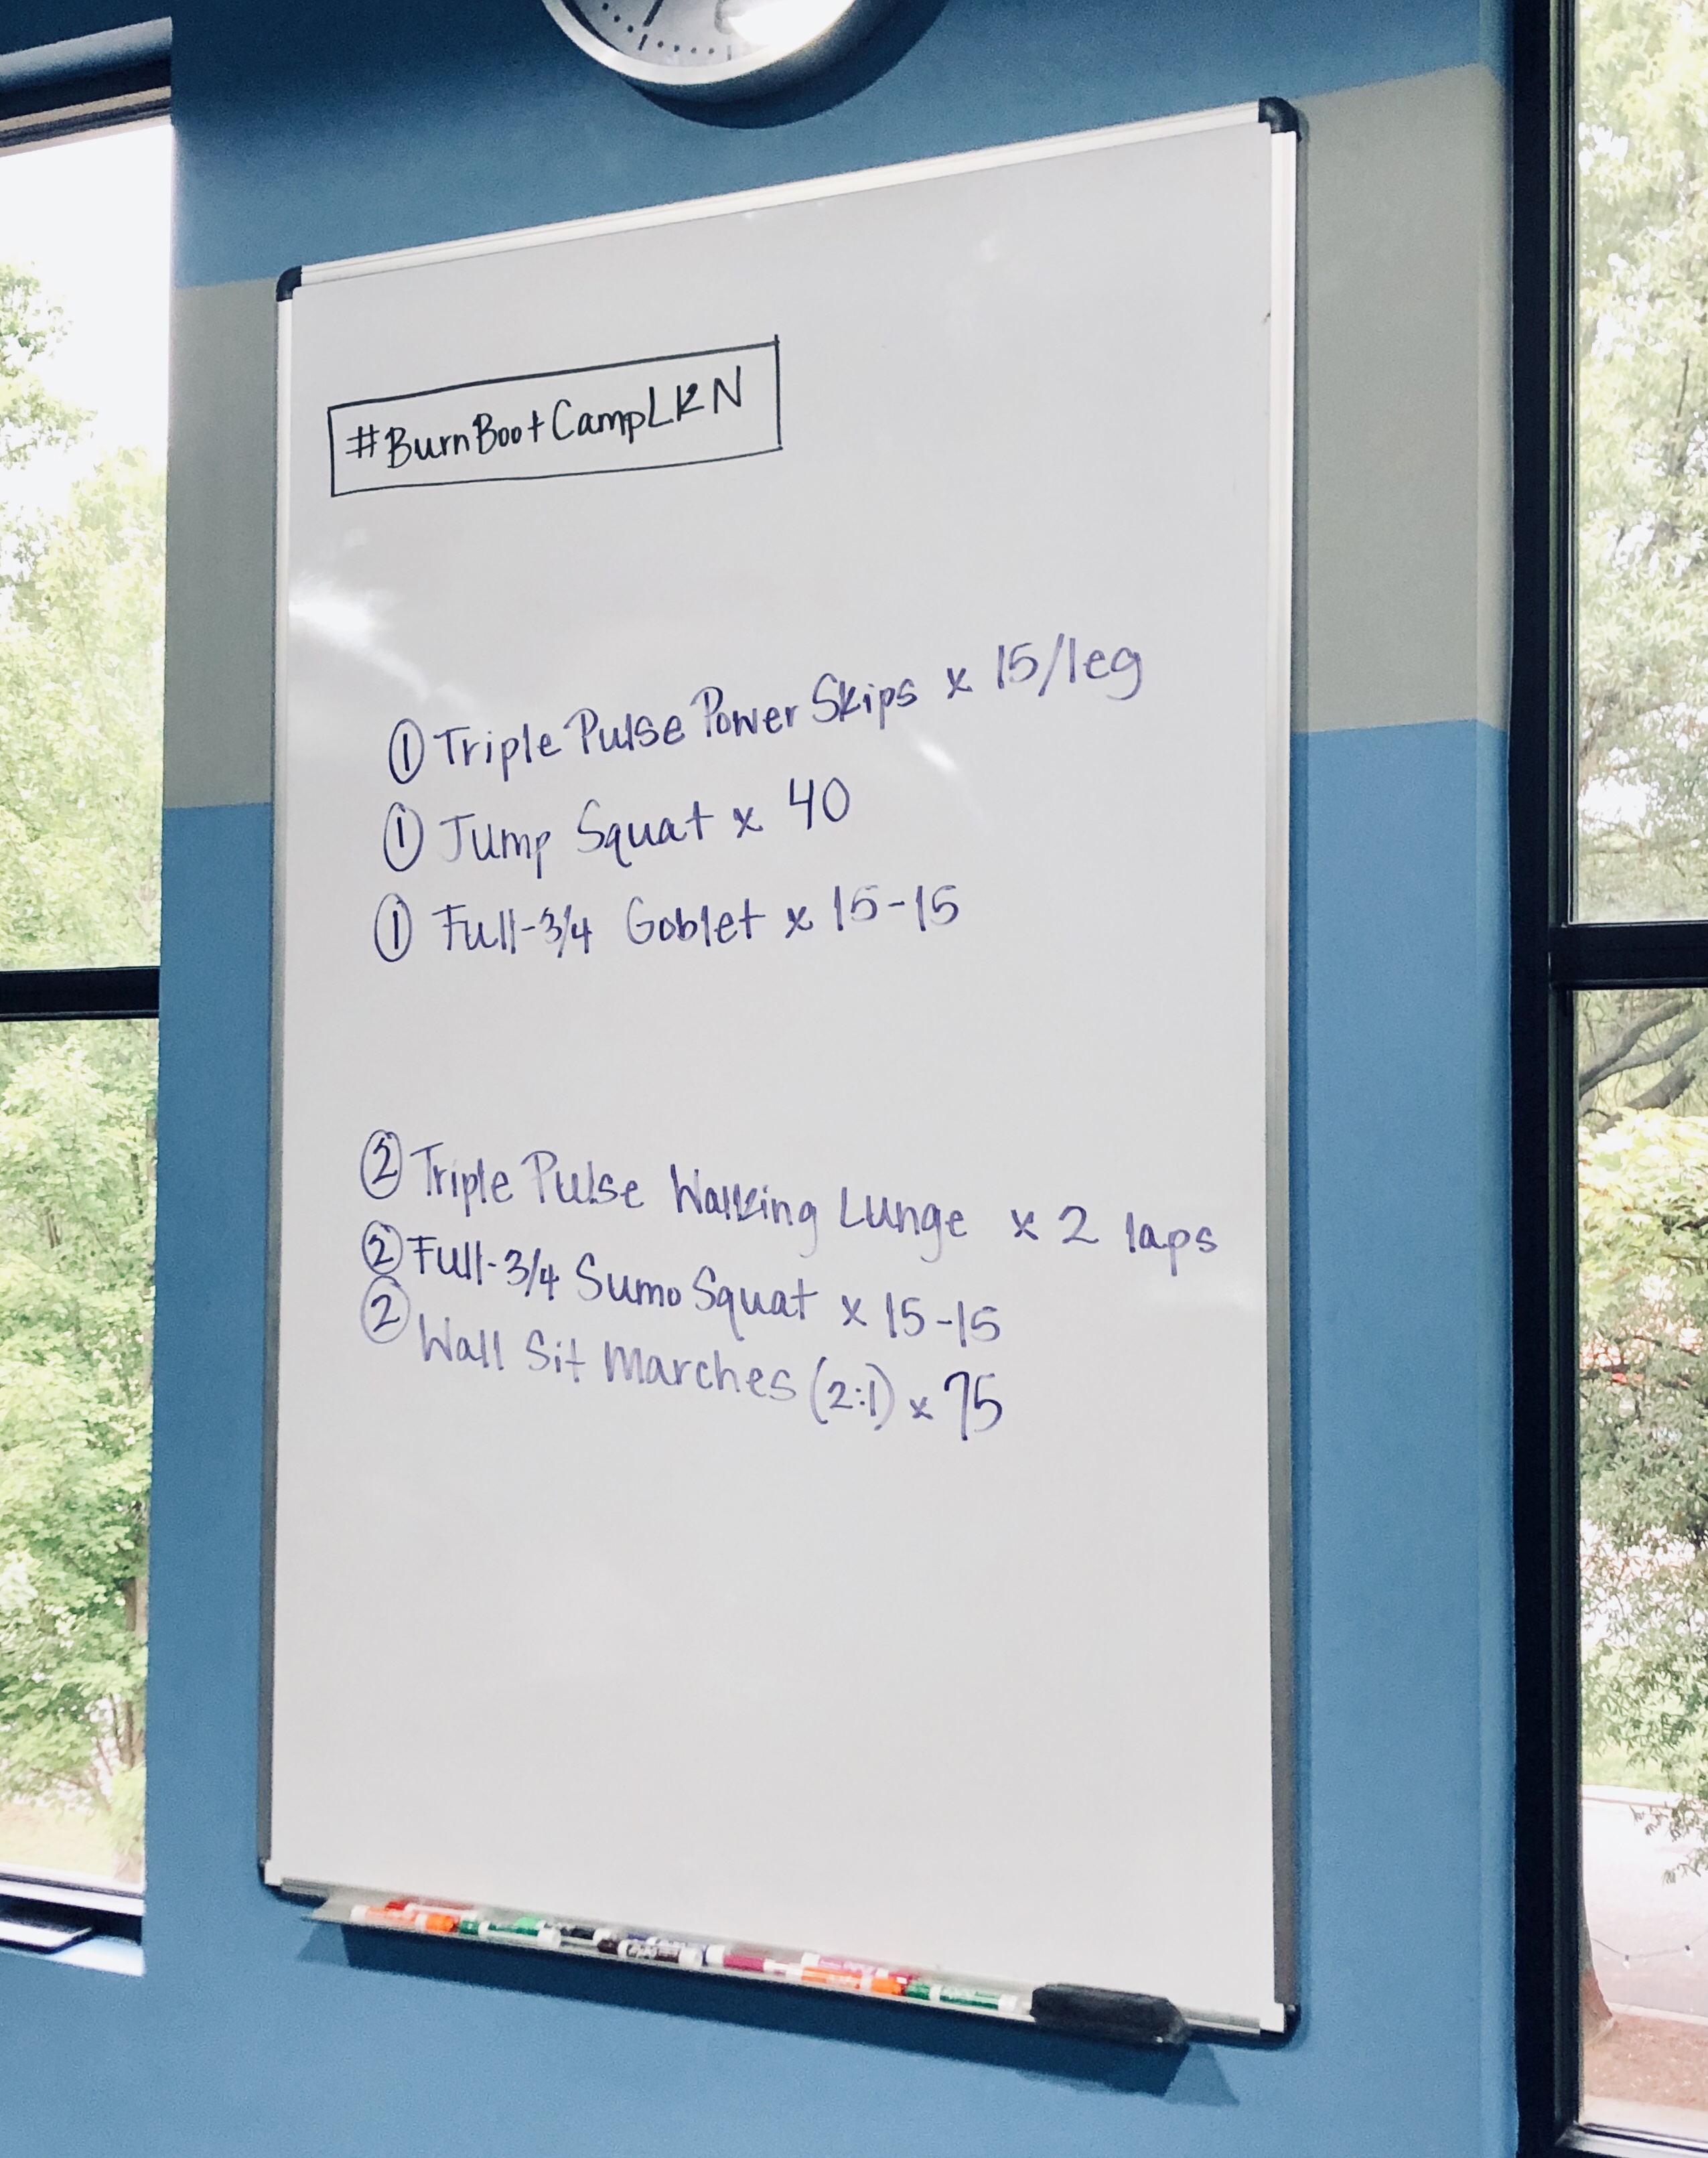 #BurnBootCampLKN
① Triple Pulse Power Skips x 15/leg
① Jump Squat x 40
① Full-3/4 Goblet x 15-15
② Triple Pulse Walking Lunge x 2 laps
② Full-3/4 Sumo Squat x 15-15
② Wall Sit Marches (2:1) x 75